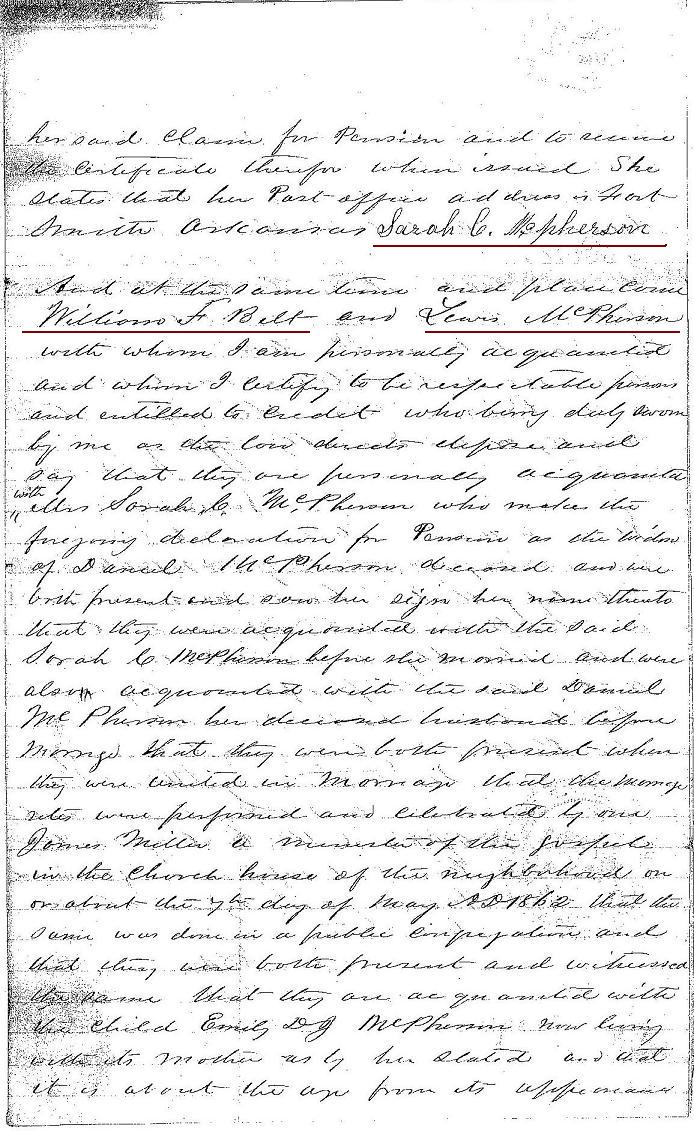 her said Claim for Pension and to receive
the Certificate therefor when issued She
States that her Post office address is Fort
Smith Arkansas Sarah C. McPherson
And at the same time and place came
William F Belt and Lewis McPherson
with whom I am personally acquainted
and whom I certify to be respectable persons
and entitled to Credit who being duly sworn
by me as the law directs depose and
say that they are personally acquainted
with
" Mrs Sarah C. McPherson who makes the
foregoing declaration for Pension as the Widow
of Daniel McPherson deceased and were
both present and saw her sign her name thereto
that they were acquainted with the said
Sarah C McPherson before she married and were
also acquainted with the said Daniel
McPherson her deceased husband before
Marriage that they were both present when
they were united in Marriage that the Marriage
rites were performed and celebrated by one
James Miller a minister of the Gospel
in the Church house of the neighborhood on
or about the 7th day of May AD 1862 that the
same was done in a public congregation and
that they were both present and witnessed
the same that they are acquainted with
the Child Emily D J McPherson now living
with its mother as by her stated and that
it is about the age from its appearance